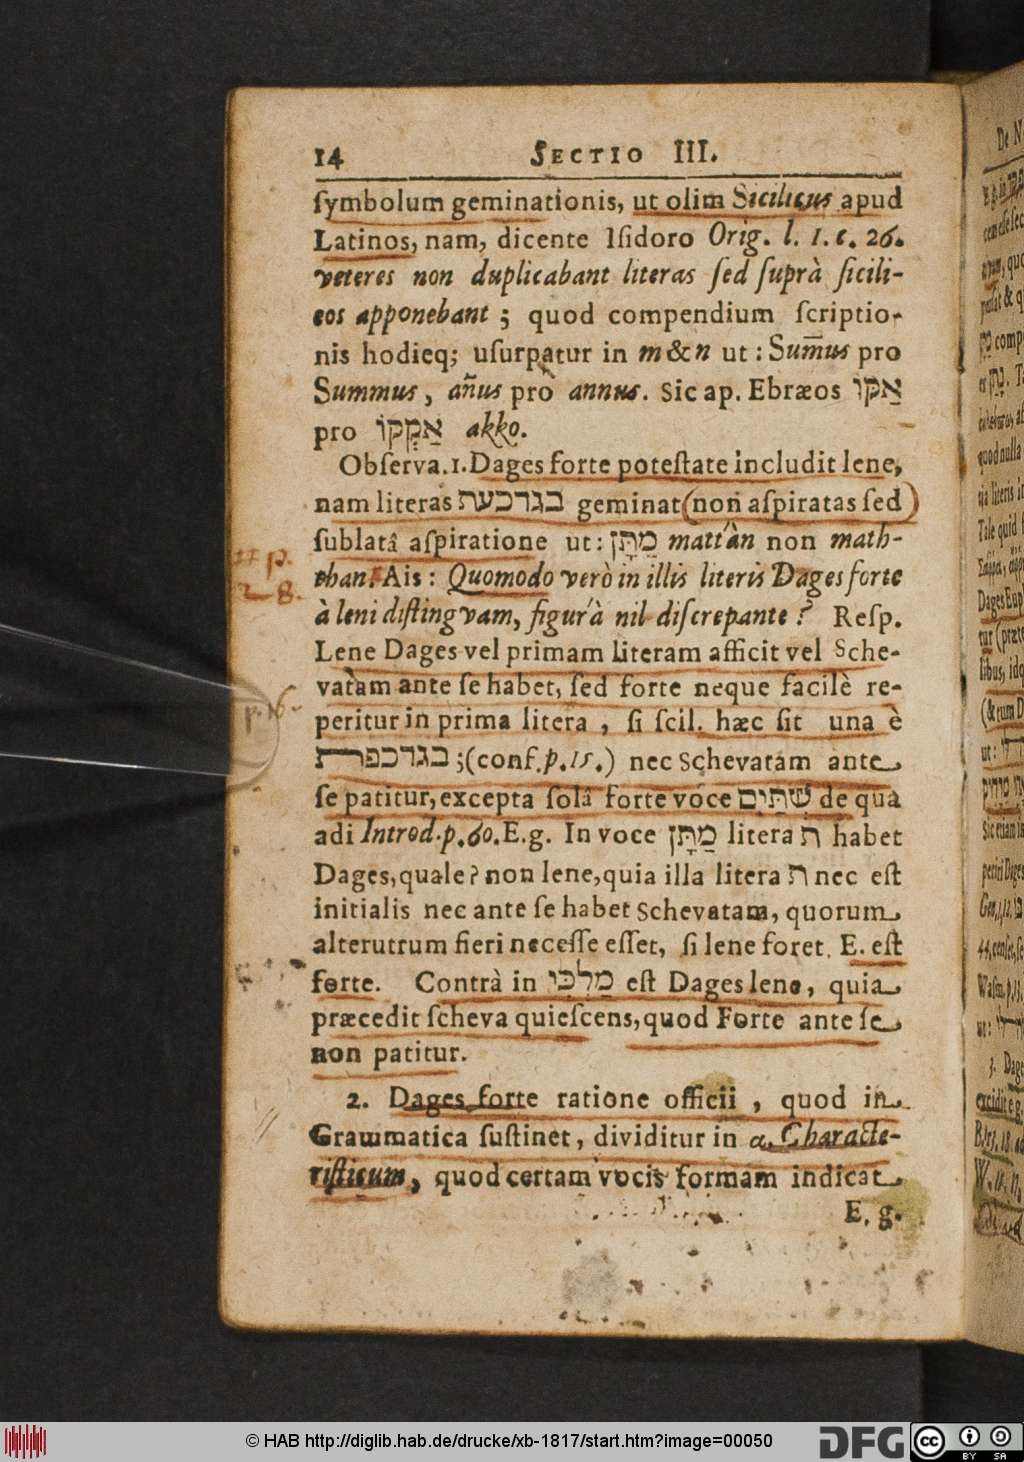 14 SECTIO III.
ſymbolum geminationis, ut olim Sicilicus apud
Latinos, nam, dicente Iſidoro Orig. l. 1. c. 26.
veteres non duplicabant literas ſed ſuprà ſicili-
cos apponebant ; quod compendium ſcriptio-
nis hodieq; uſurpatur in m & n ut : Sum̅us pro
Summus, añus pro annus. Sic ap. Ebræos אַקּוֹ
pro אַקְקוֹ akko.
Obſerva. 1. Dages forte poteſtate includit lene,
nam literas בגדכפת geminat (non aſpiratas ſed)
ſublatâ aſpiratione ut : מַתָּן mattàn non math-
than. Ais : Quomodo verò in illis literis Dages forte
à leni diſtingvam, figurâ nil diſcrepante ? Reſp.
Lene Dages vel primam literam afficit vel Sche-
vatam ante ſe habet, ſed forte neque facilè re-
peritur in prima litera , ſi ſcil. hæc ſit una è
בגדכפת ; (conf. p. 15.) nec Schevatam ante
ſe patitur, excepta ſolâ forte voce שְׁתַּיִם de qua
adi Introd. p. 60. E. g. In voce מַתָּן litera ת habet
Dages, quale ? non lene, quia illa litera ת nec eſt
initialis nec ante ſe habet Schevatam, quorum
alterutrum fieri neceſſe eſſet, ſi lene foret. E. eſt
forte. Contrà in מַלְכִּי eſt Dages lene, quia
præcedit ſcheva quieſcens, quod Forte ante ſe
non patitur.
2. Dages forte ratione officii , quod in
Grammatica ſuſtinet, dividitur in α. Characte-
riſticum, quod certam vocis formam indicat
E. g.
p.
28.
p. 16
© HAB http://diglib.hab.de/drucke/xb-1817/start.htm?image=00050
DFG
cc
BY SA